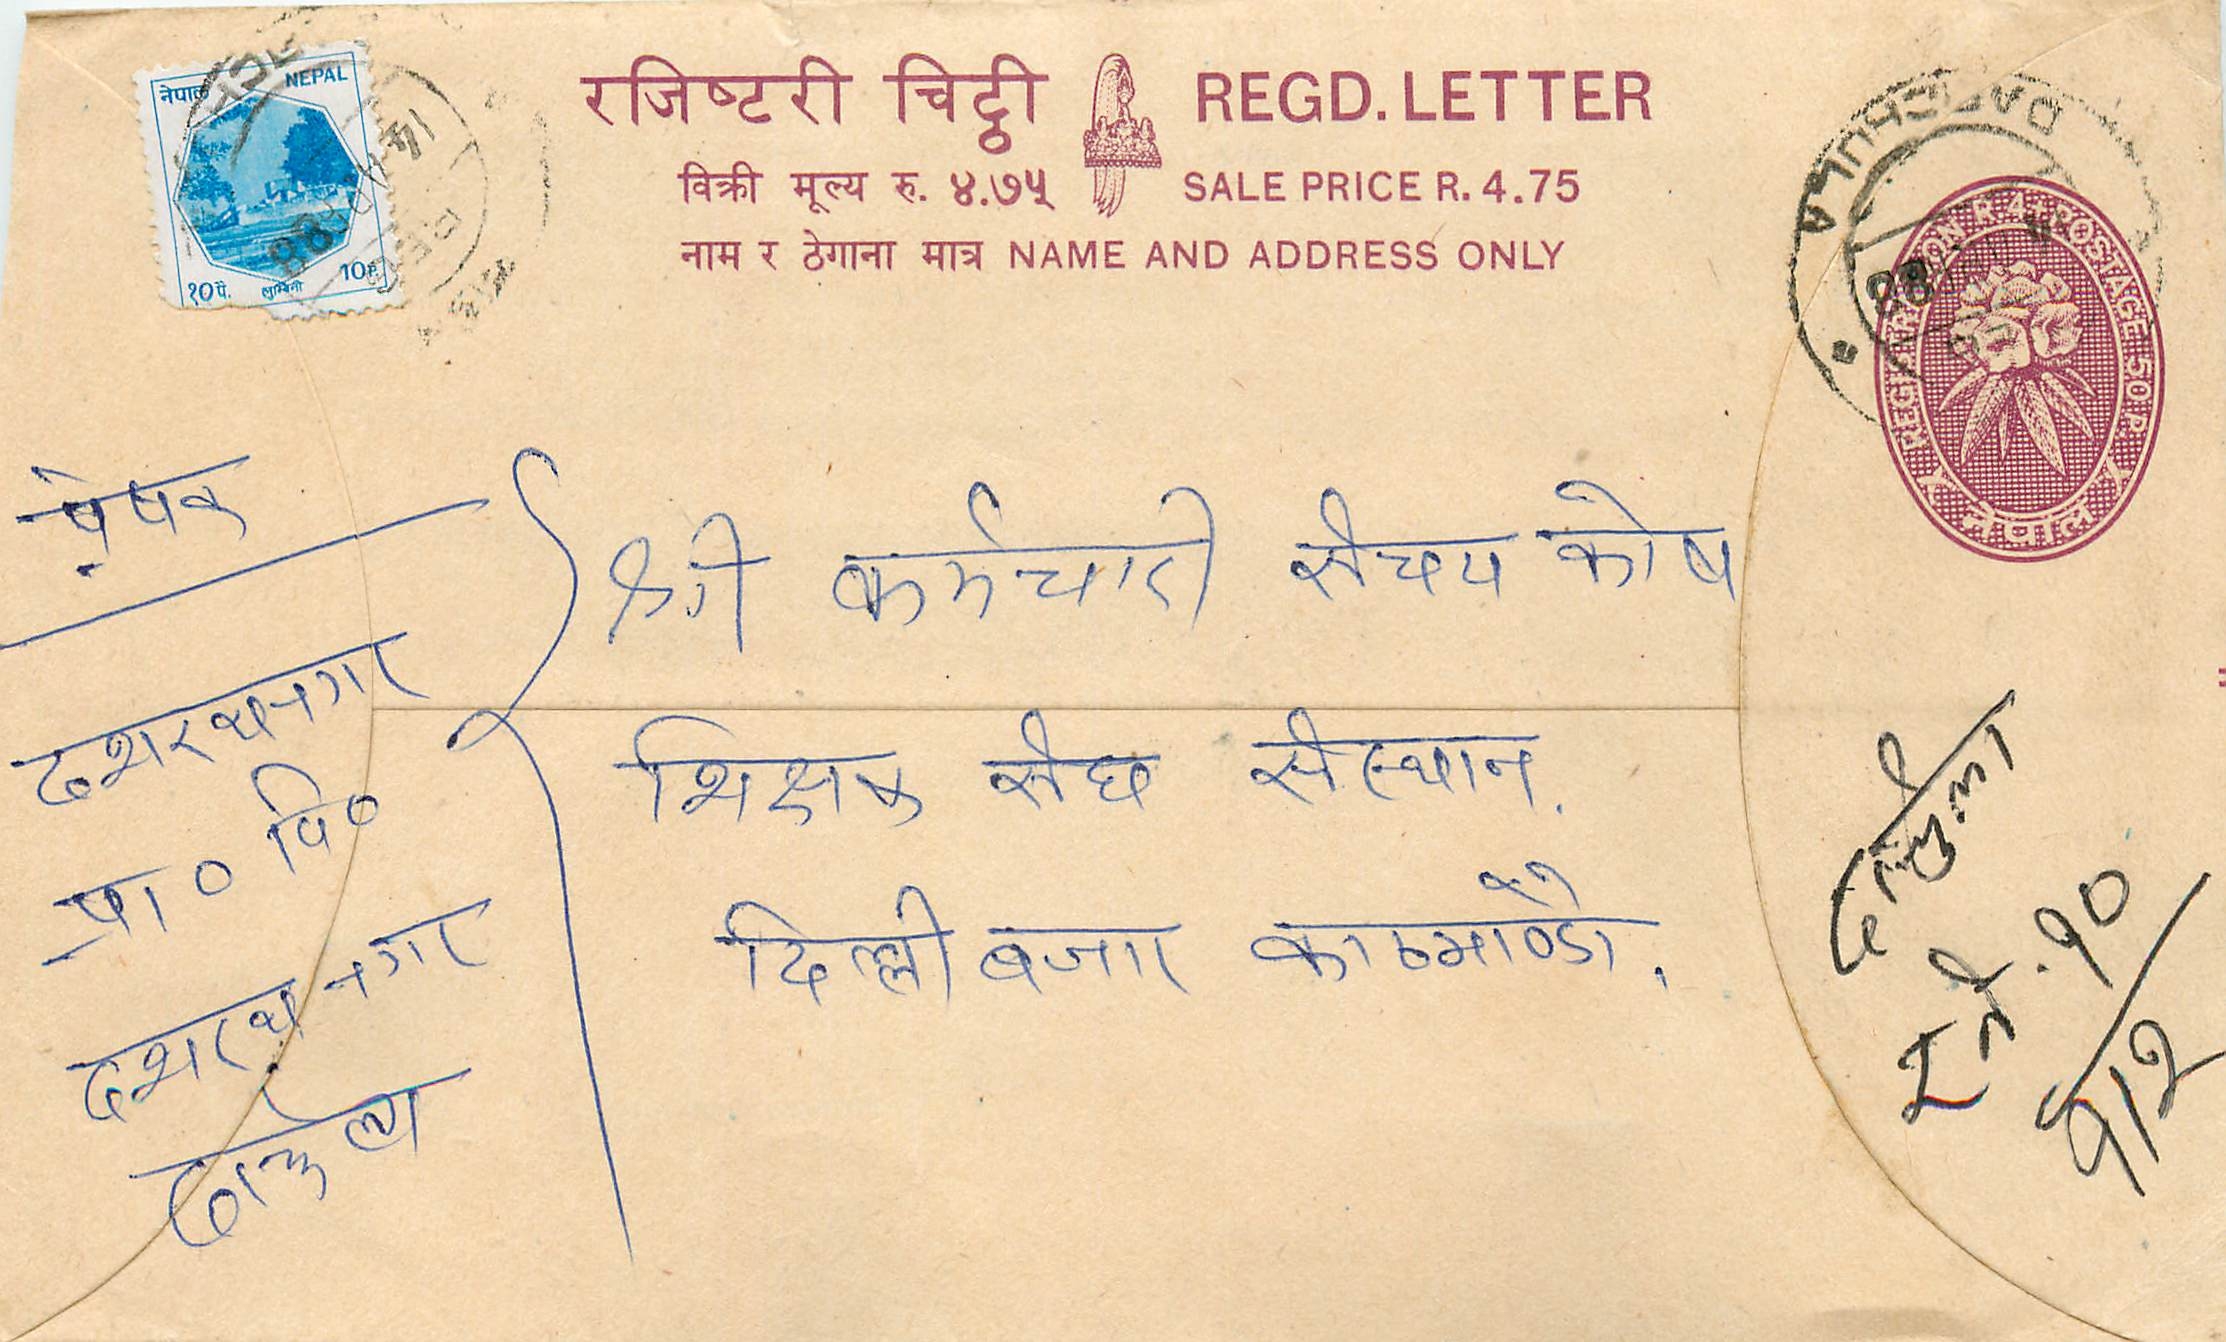 नेपाल NEPAL
१० पै. लुम्बिनी 10 P.
रजिष्टरी चिट्ठी REGD. LETTER
विक्री मूल्य रु. ४.७५ SALE PRICE R. 4.75
नाम र ठेगाना मात्र NAME AND ADDRESS ONLY
DARCHULA
88
REGISTRATION R. 4 + POSTAGE 50 P.
नेपाल
प्रेषक
दशरथनगर
प्रा० वि०
दशरथ नगर
श्री कर्मचारी संचय कोष
शिक्षक संघ संस्थान.
दिल्ली बजार काठमाण्डौ.